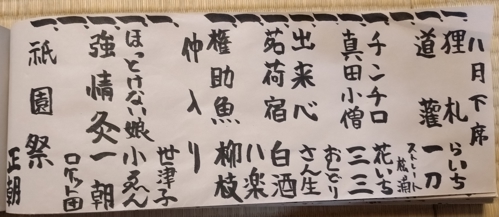 八月下席
一 狸札 らいち
一 道灌 一刀
ストレート松浦
一 チンチロ 花いち
一 真田小僧 三三
おしどり
一 出来心 さん生
一 茗荷宿 白酒
八楽
一 権助魚 柳枝
仲入り
世津子
一 ほっとけない娘 小ゑん
一 強情灸 一朝
ロケット団
一 祇園祭 正朝